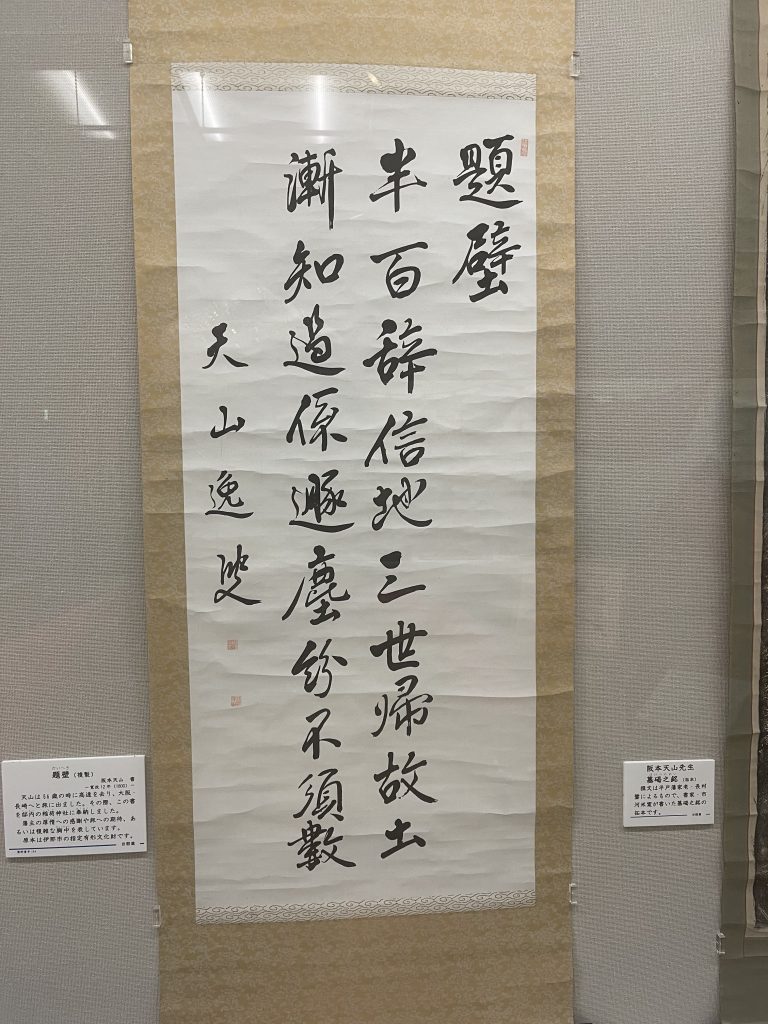 題壁
半百辞信地三世帰故土
漸知過係遯塵紛不須數
天山逸叟
だいへき
題壁(複製)
阪本天山 書
―寛政12年(1800)―
天山は56歳の時に高遠を去り、大阪・
長崎へと旅に出ました。その際、この書
を邸内の稲荷神社に奉納しました。
藩主の厚情への感謝や旅への期待、あ
るいは複雑な胸中を表しています。
原本は伊那市の指定有形文化財です。
当館蔵
阪本天山先生
墓碣之銘(拓本)
撰文は平戸藩家老・長村
鑒によるもので、書家・市
河米庵が書いた墓碣之銘の
拓本です。
当館蔵